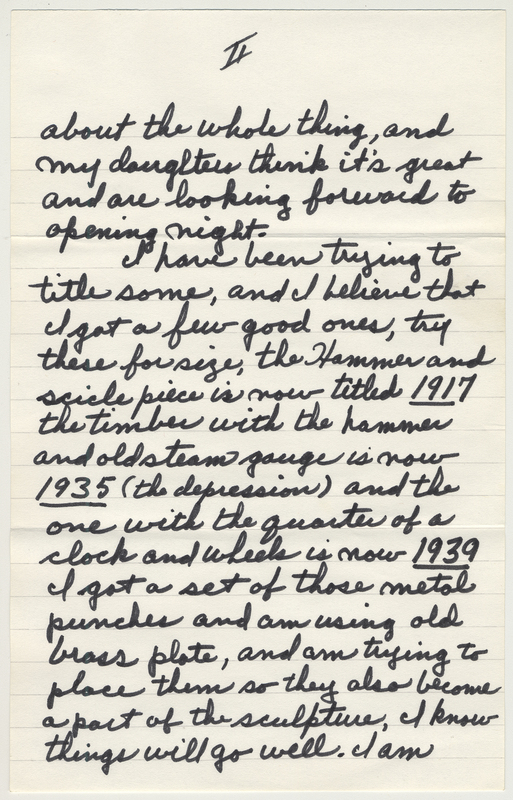 II
about the whole thing, and
my daughters think it's great
and are looking forward to
opening night.
I have been trying to
title some, and I believe that
I got a few good ones, try
these for size, the Hammer and
scicle piece is now titled 1917
the timber with the hammer
and old steam gauge is now
1935 (the depression) and the
one with the quarter of a
clock and wheels is now 1939
I got a set of those metal
punches and am using old
brass plate, and am trying to
place them so they also become
a part of the sculpture, I know
things will go well. I am